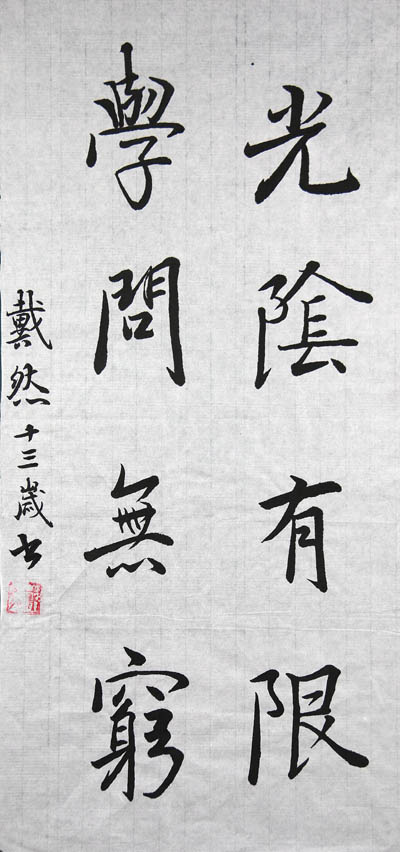 光陰有限
學問無窮
戴然十三歲书